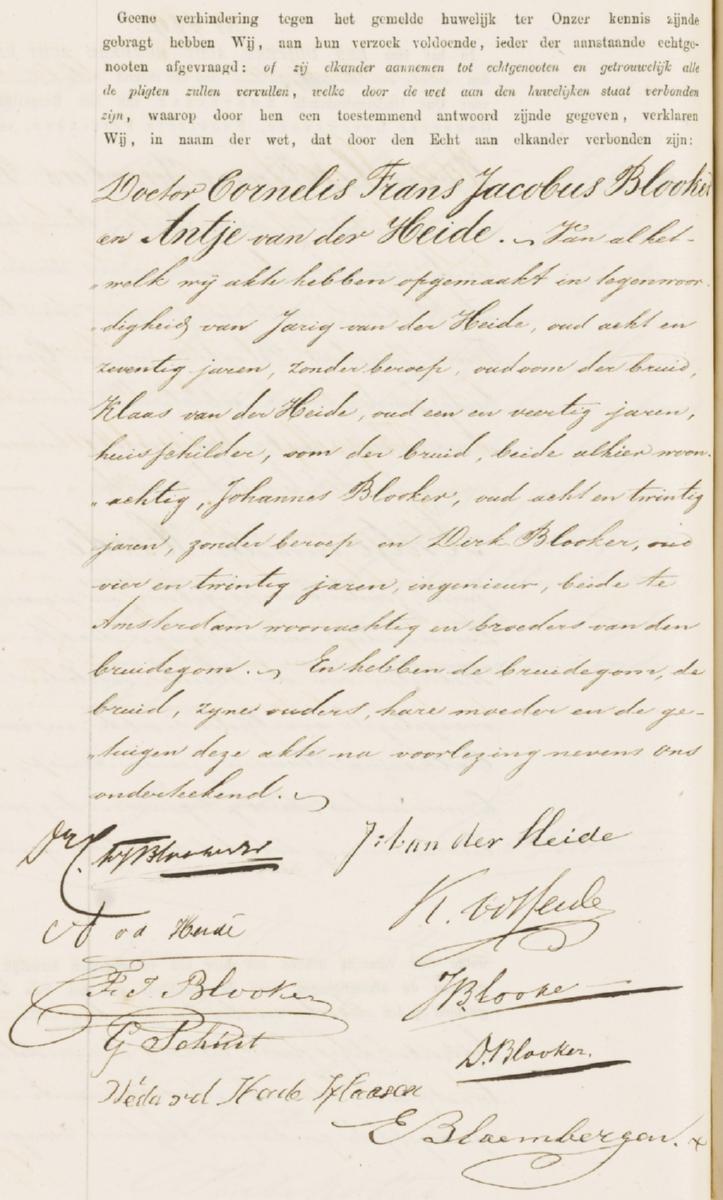 Geene verhindering tegen het gemelde huwelijk ter Onzer kennis zijnde
gebragt hebben Wij, aan hun verzoek voldoende, ieder der aanstaande echtge-
nooten afgevraagd: of zij elkander aannemen tot echtgenooten en getrouwelijk alle
de pligten zullen vervullen, welke door de wet aan den huwelijken staat verbonden
zijn, waarop door hen een toestemmend antwoord zijnde gegeven, verklaren
Wij, in naam der wet, dat door den Echt aan elkander verbonden zijn:
Doctor Cornelis Frans Jacobus Blooker
en Antje van der Heide. Van al het-
„welk wij akte hebben opgemaakt in tegenwoor-
„digheid van Jarig van der Heide, oud acht en
zeventig jaren, zonder beroep, oudoom der bruid,
Klaas van der Heide, oud een en veertig jaren,
huisschilder, oom der bruid, beide alhier woon-
„achtig, Johannes Blooker, oud acht en twintig
jaren, zonder beroep en Dirk Blooker, oud
vier en twintig jaren, ingenieur, beide te
Amsterdam woonachtig en broeders van den
bruidegom. En hebben de bruidegom, de
bruid, zyne ouders, hare moeder en de ge-
„tuigen deze akte na voorlezing nevens ons
onderteekend.
Dr. C. F. J. Blooker
J: van der Heide
A v d Heide
K. vd Heide
F. J. Blooker
J Blooker
G Schut
D. Blooker.
v d Heide Klaasen
E Bloembergen.